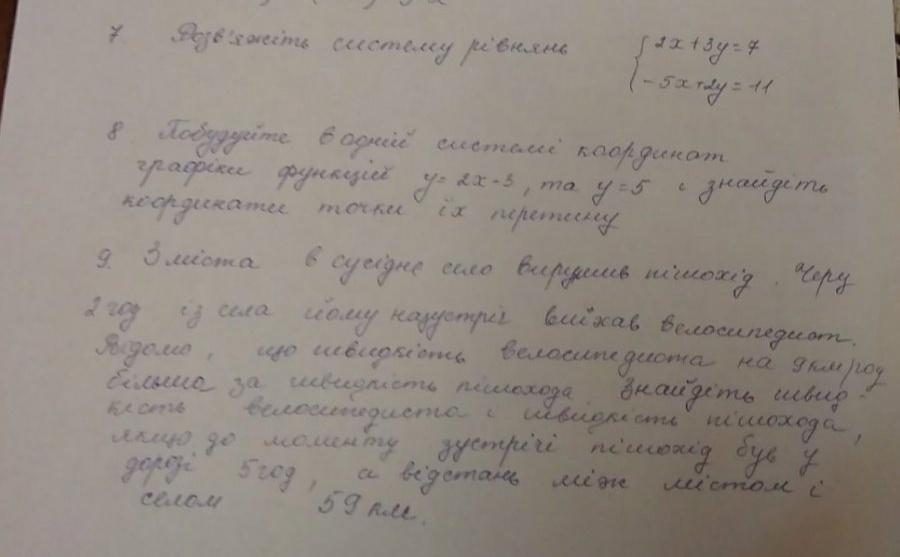 7. Розв'яжіть систему рівнянь { 2x+3y=7
-5x+2y=11
8 Побудуйте в одній системі координат
графіки функцій y=2x-3, та y=5 і знайдіть
координати точки їх перетину
9. З міста в сусіднє село вирушив пішохід. Через
2 год із села йому назустріч виїхав велосипедист.
Відомо, що швидкість велосипедиста на 9 км/год
більша за швидкість пішохода Знайдіть швид-
кість велосипедиста і швидкість пішохода,
якщо до моменту зустрічі пішохід був у
дорозі 5 год, а відстань між містом і
селом 59 км.